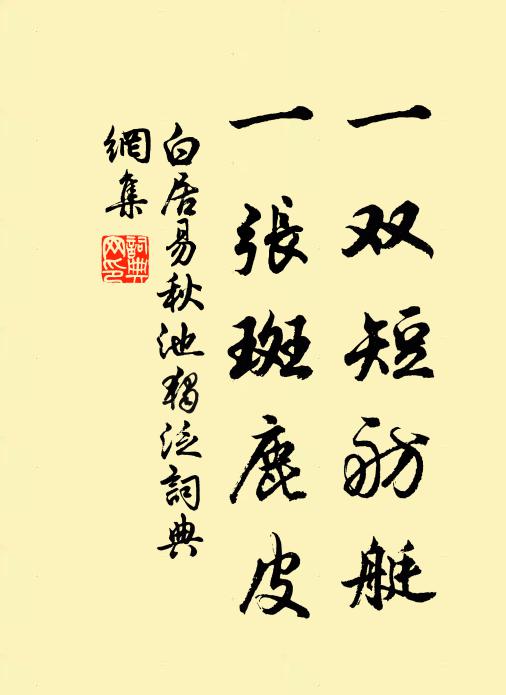 一双短舫艇
一張斑鹿皮
白居易秋池獨泛詞典
網集
詞典
网印